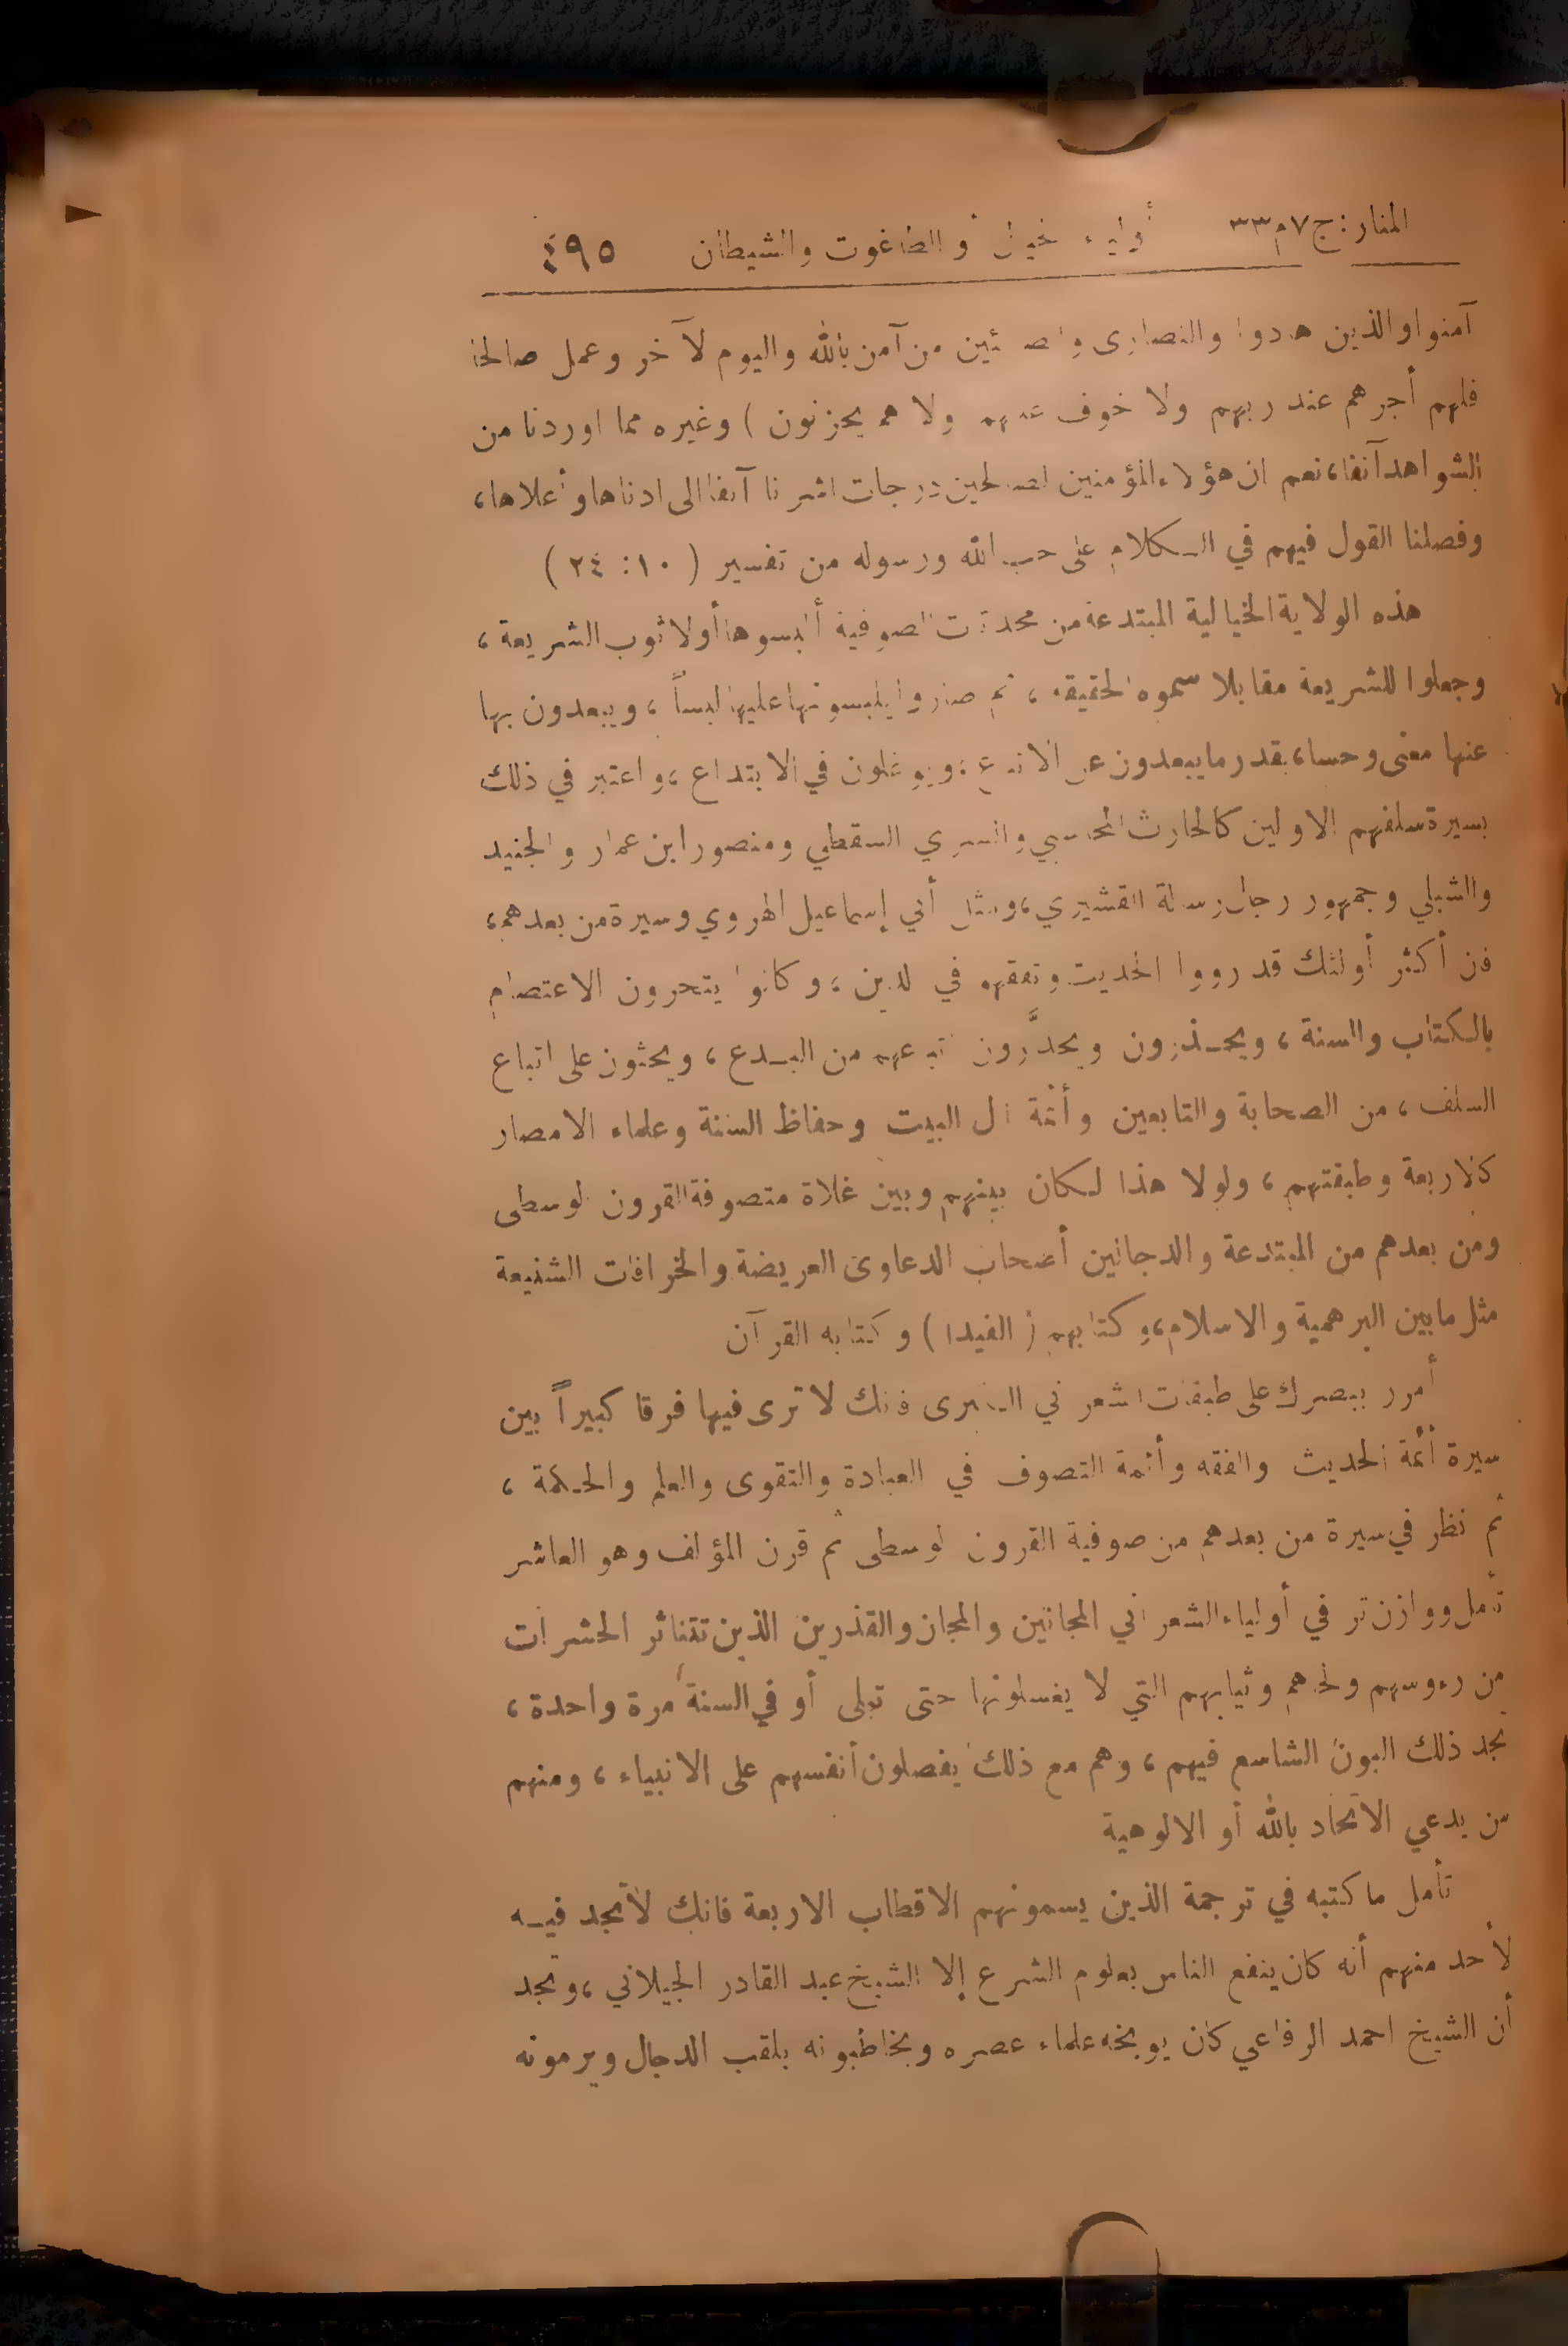 المنار: ج ٧ م ٣٣ أولياء الخيال والطاغوت والشيطان ٤٩٥
آمنوا والذين هادوا والنصارى والصابئين من آمن بالله واليوم الآخر وعمل صالحا
فلهم أجرهم عند ربهم ولا خوف عليهم ولا هم يحزنون ) وغيره مما اوردنا من
الشواهد آنفا، نعم ان هؤلاء المؤمنين الصالحين درجات اشرنا آنفا الى ادناها وأعلاها،
وفصلنا القول فيهم في الكلام على حب الله ورسوله من تفسير ( ١٠ : ٢٤ )
هذه الولاية الخيالية المبتدعة من محدثات الصوفية ألبسوها أولا ثوب الشريعة ،
وجعلوا للشريعة مقابلا سموه الحقيقة ، ثم صاروا يلبسونها عليها لبساً ، ويبعدون بها
عنها معنى وحسا، بقدر ما يبعدون عن الاتباع ، ويوغلون في الابتداع ، واعتبر في ذلك
بسيرة سلفهم الاولين كالحارث المحاسبي والسري السقطي ومنصور ابن عمار والجنيد
والشبلي وجمهور رجال رسالة القشيري، ومثل أبي إسماعيل الهروي وسيرة من بعدهم،
فان أكثر أولئك قد رووا الحديث وتفقهوا في الدين ، وكانوا يتحرون الاعتصام
بالكتاب والسنة ، ويحذرون ويحذِّرون أتباعهم من البدع ، ويحثون على اتباع
السلف ، من الصحابة والتابعين وأئمة آل البيت وحفاظ السنة وعلماء الامصار
كالاربعة وطبقتهم ، ولولا هذا لكان بينهم وبين غلاة متصوفة القرون الوسطى
ومن بعدهم من المبتدعة والدجالين أصحاب الدعاوى العريضة والخرافات الشنيعة
مثل ما بين البرهمية والاسلام، وكتابهم ( الفيدا ) وكتابه القرآن
أمرر ببصرك على طبقات الشعراني الكبرى فانك لا ترى فيها فرقا كبيراً بين
سيرة أئمة الحديث والفقه وأئمة التصوف في العبادة والتقوى والعلم والحكمة ،
ثم انظر في سيرة من بعدهم من صوفية القرون الوسطى ثم قرن المؤلف وهو العاشر
تأمل ووازن تر في أولياء الشعراني المجانين والمجان والقذرين الذين تتناثر الحشرات
من رءوسهم ولحاهم وثيابهم التي لا يغسلونها حتى تبلى أو في السنة مرة واحدة ،
تجد ذلك البون الشاسع فيهم ، وهم مع ذلك يفضلون أنفسهم على الانبياء ، ومنهم
من يدعي الاتحاد بالله أو الالوهية
تأمل ما كتبه في ترجمة الذين يسمونهم الاقطاب الاربعة فانك لا تجد فيه
لأحد منهم أنه كان ينفع الناس بعلوم الشرع إلا الشيخ عبد القادر الجيلاني ، وتجد
أن الشيخ احمد الرفاعي كان يوبخه علماء عصره ويخاطبونه بلقب الدجال ويرمونه